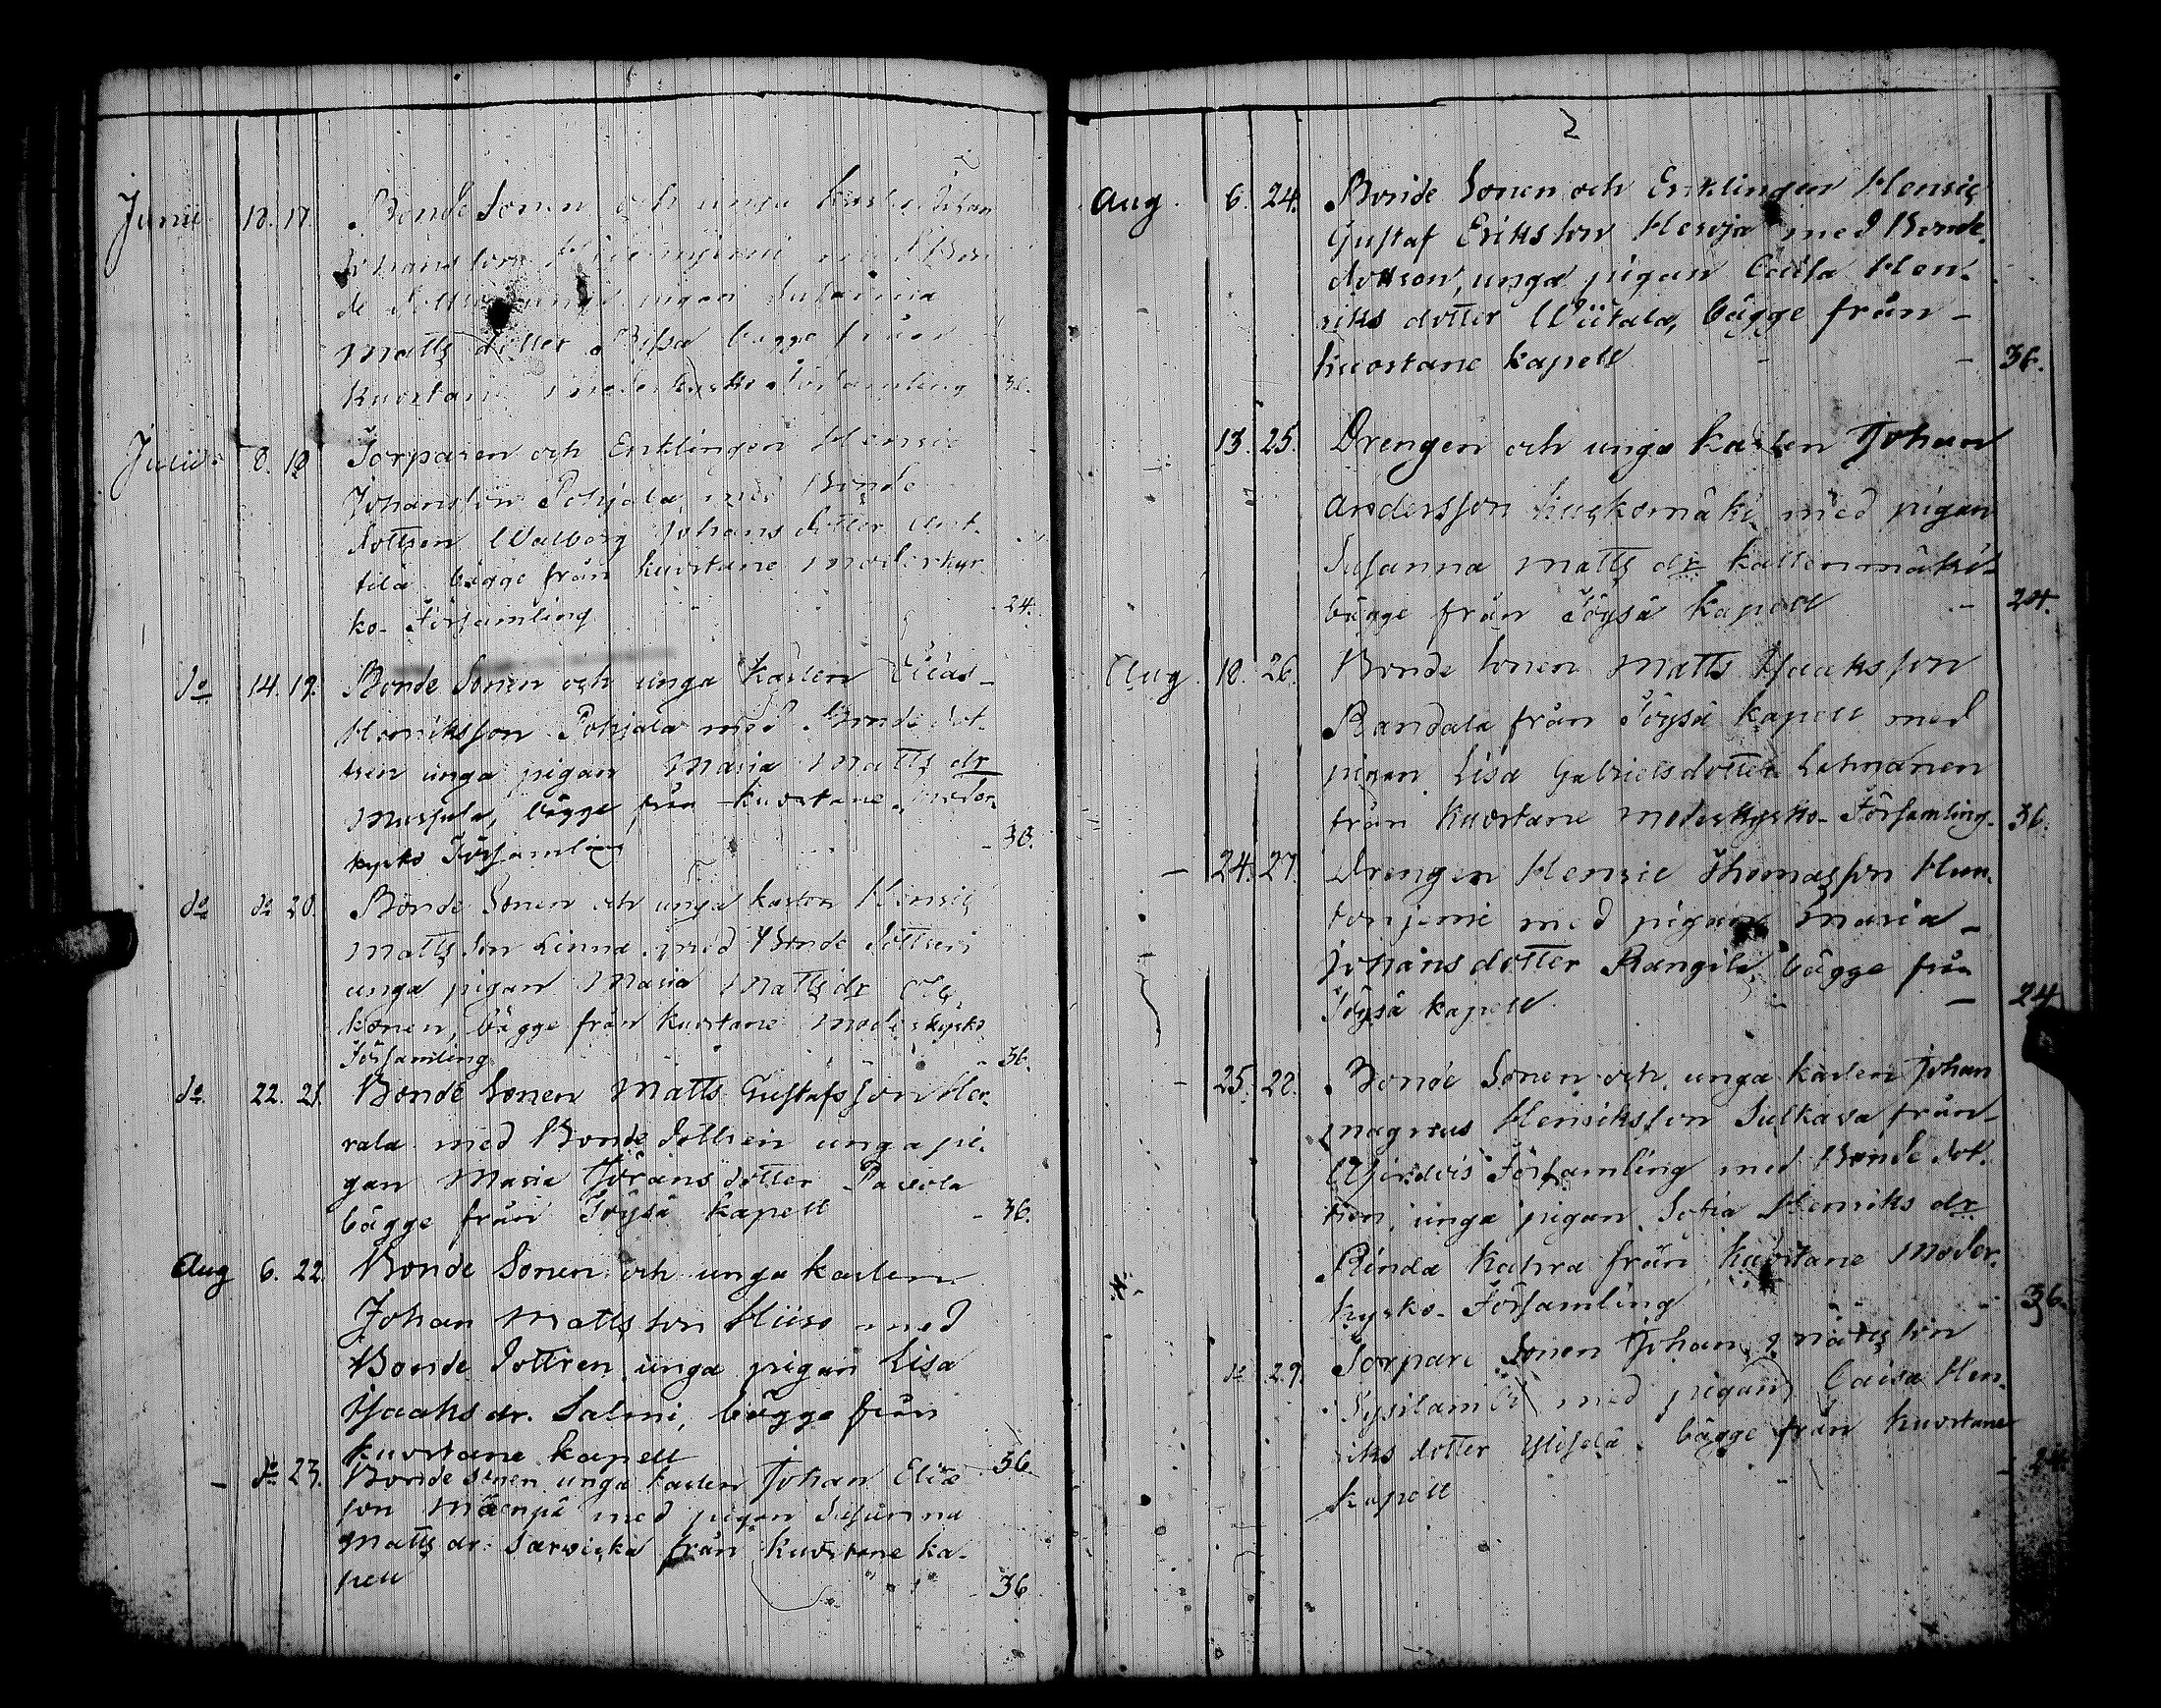 Junii 18. 17. Bonde Sonen och unga Karlen Johan
Johansson med Bon
de Dottren unga pigan Susanna
Matts dotter bägge från
Kuortane Moderkyrko Församling 36.
Julii 8. 18 Torparen och Enklingen Henric
Johansson Pohjala med Bonde
dottren Walborg Johans dotter Ant-
tila bägge från Kuortane Moderkyr
ko- Församling - 24.
do 14. 19. Bonde Sonen och unga Karlen Elias -
Henriksson Pohjala med Bonde dot-
tren unga pigan Maria Matts dr
bägge från Kuortane Moder
kyrko Församling - 36.
do do 20. Bonde Sonen och unga karlen Henric
Mattsson Linna med Bonde dottren
unga pigan Maria Matts dr
konen, bägge från Kuortane Moderkyrko
Församling - 36.
do 22. 21. Bonde Sonen Matts Gustafsson Her-
rala med Bonde dottren unga pi-
gan Maria Görans dotter Pavola
bägge från Töysä Kapell - 36.
Aug 6. 22. Bonde Sonen och unga karlen
Johan Mattsson Hiiro med
Bonde dottren unga pigan Lisa
Isaaks dr. Salmi, bägge från
Kuortane Kapell 36.
- do 23. Bonde sonen unga karlen Johan Elia
son Mäenpä med pigan Susanna
Matts dr. Sarvicka från Kuortane ka-
pell - 36
2
Aug. 6. 24. Bonde Sonen och Enklingen Henric
Gustaf Eriksson Heroja med Bonde
dottren, unga pigan Caisa Hen-
riks dotter Wiitala, bägge från -
Kuortane kapell - - 36.
13. 25. Drengen och unga karlen Johan
Andersson Kuckomäki med pigan
Susanna Matts dr Kattenmäki
bägge från Töysä Kapell - 24.
Aug. 18. 26. Bonde Sonen Matts Isaaksson
Randala från Töysä Kapell med
pigan Lisa Gabrielsdotter Latmanen
från Kuortane Moderkyrko- Församling. 36.
- 24. 27. Drengen Henric Thomasson Hun-
tonjemi med pigan Maria -
Johansdotter Rangila bägge från
Töysä kapell - - 24
- 25. 28. Bonde Sonen och unga karlen Johan
Magnus Henriksson Sulkava från -
Alfjerdvis Församling med Bonde dot-
tren, unga pigan Sofia Henriks dr
Rinda Kahra från Kuortane Moder-
kyrko- Församling 36.
do 29. Torpare Sonen Johan Mattsson
med pigan Caisa Hen-
riks dotter bägge från Kuortane
Kapell - - 24.